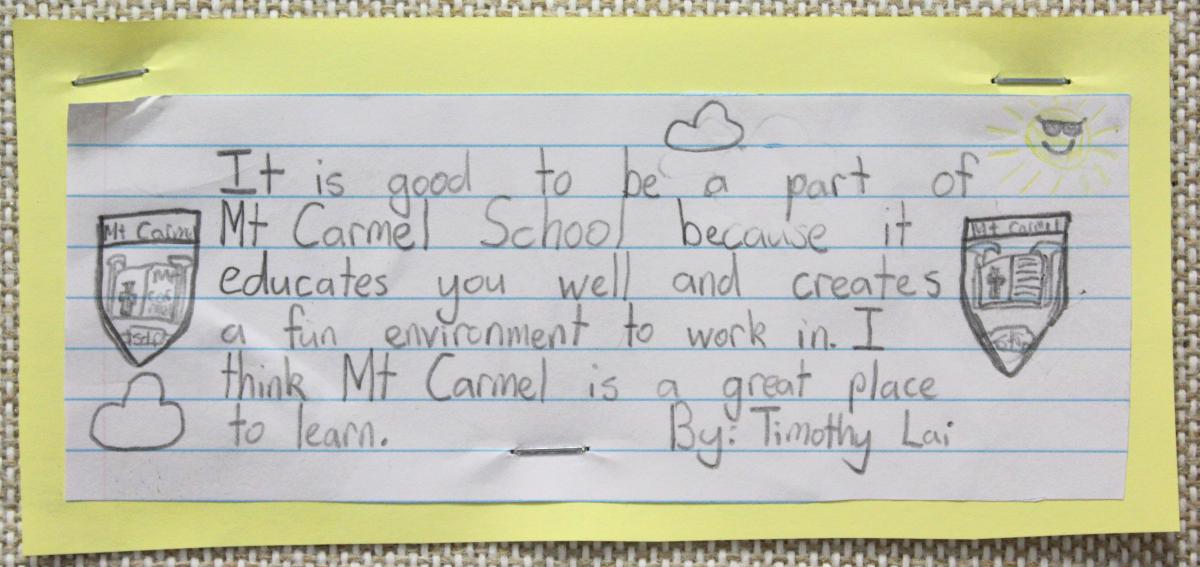 It is good to be a part of
Mt Carmel School because it
educates you well and creates
a fun environment to work in. I
think Mt Carmel is a great place
to learn. By: Timothy Lai
Mt Carmel
Mt Carmel